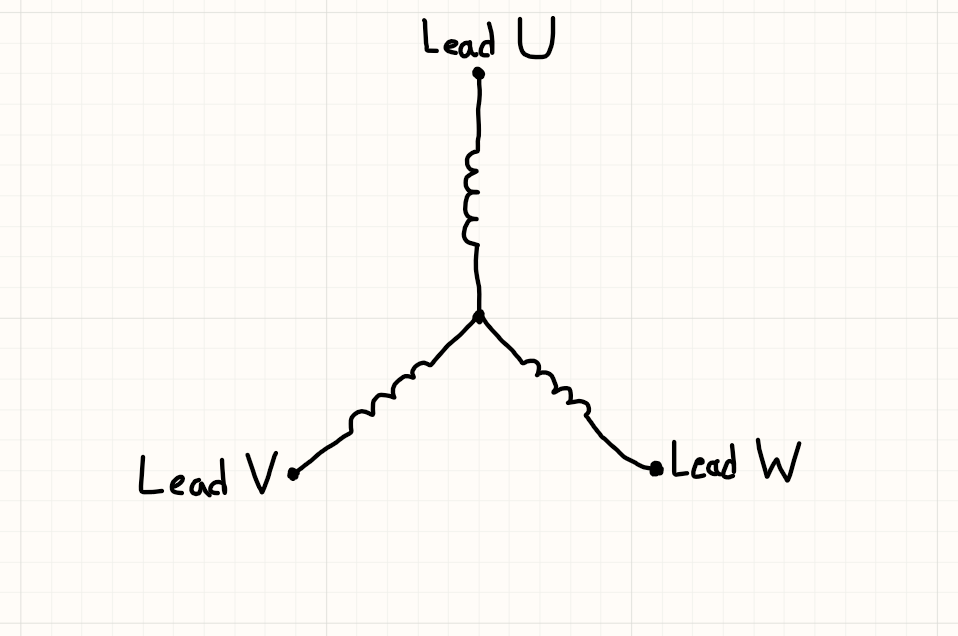 Lead U
Lead V
Lead W